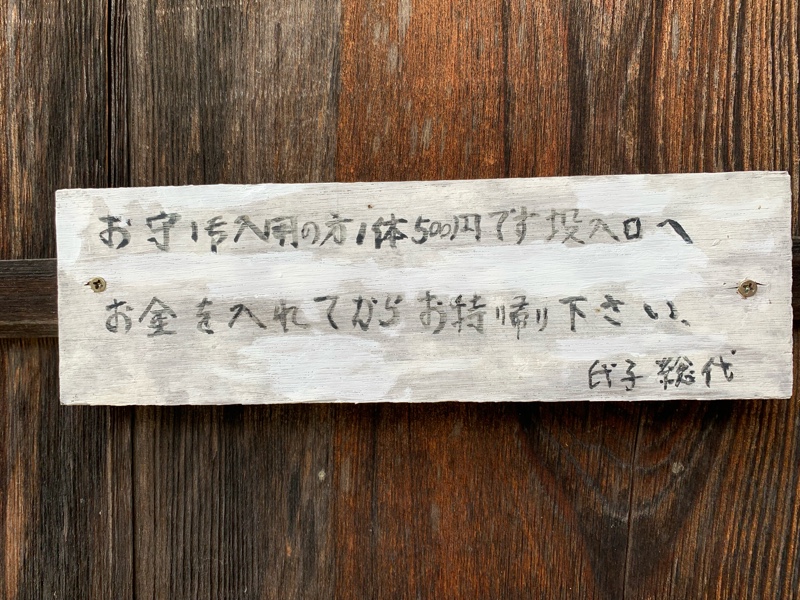 お守り御入用の方1体500円です投入口へ
お金を入れてからお持帰り下さい、
氏子総代